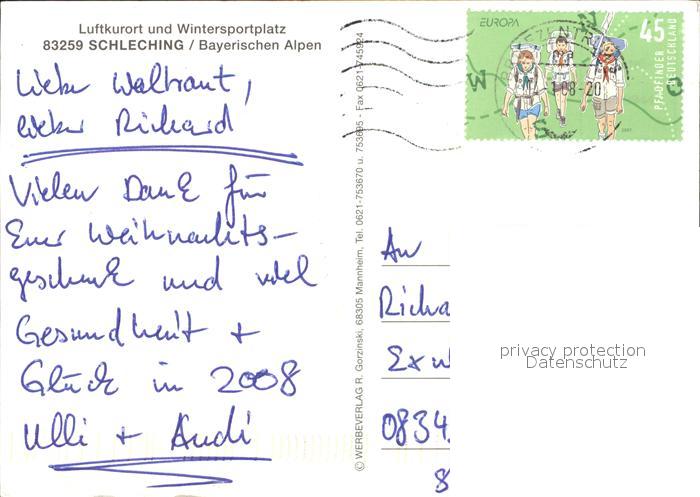 Luftkurort und Wintersportplatz
83259 SCHLECHING / Bayerischen Alpen
Liebe Waltraut,
lieber Richard
Vielen Dank für
Euer Weihnachts-
geschenk und viel
Gesundheit +
Glück in 2008
Ulli + Andi
© WERBEVERLAG R. Gorzinski, 68305 Mannheim, Tel. 0621-753670 u. 753695 - Fax 0621-745924
EUROPA
45
PFADFINDER
DEUTSCHLAND
2007
08-20
An
Richa
0834
8
privacy protection
Datenschutz